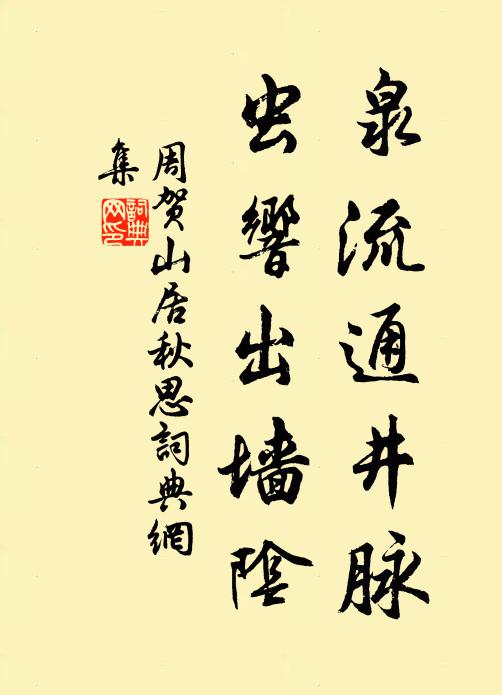 泉流通井脉
虫響出墙陰
周贺山居秋思詞典網
集
詞典
网印